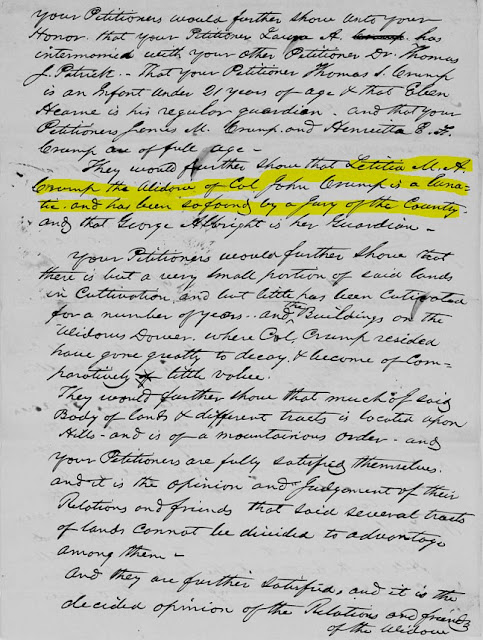 your Petitioners would further show unto your
Honor that your Petitioner Laura A. Crump has
intermarried with your other Petitioner Dr. Thomas
J. Patrick. - That your Petitioner Thomas S. Crump
is an Infant under 21 years of age & that Eben
Hearne is his regular guardian - and that your
Petitioners James M. Crump and Henrietta E. F.
Crump are of full age -
They would further show that Letitia M. A.
Crump the Widow of Col John Crump is a luna-
tic - and has been so found by a Jury of the County
and that George Albright is her Guardian -
your Petitioners would further show that
there is but a very small portion of said lands
in Cultivation, and but little has been Cultivated
for a number of years - and the Buildings on the
Widows Dower, where Col, Crump resided
have gone greatly to decay, & become of Com-
paratively little value.
They would further show that much of said
Body of lands & different tracts is located upon
Hills - and is of a mountainous order - and
your Petitioners are fully satisfied themselves.
and it is the opinion and Judgement of their
Relations and friends that said several tracts
of lands cannot be divided to advantage
among them -
And they are further satisfied, and it is the
decided opinion of the Relations and friends
of the Widow